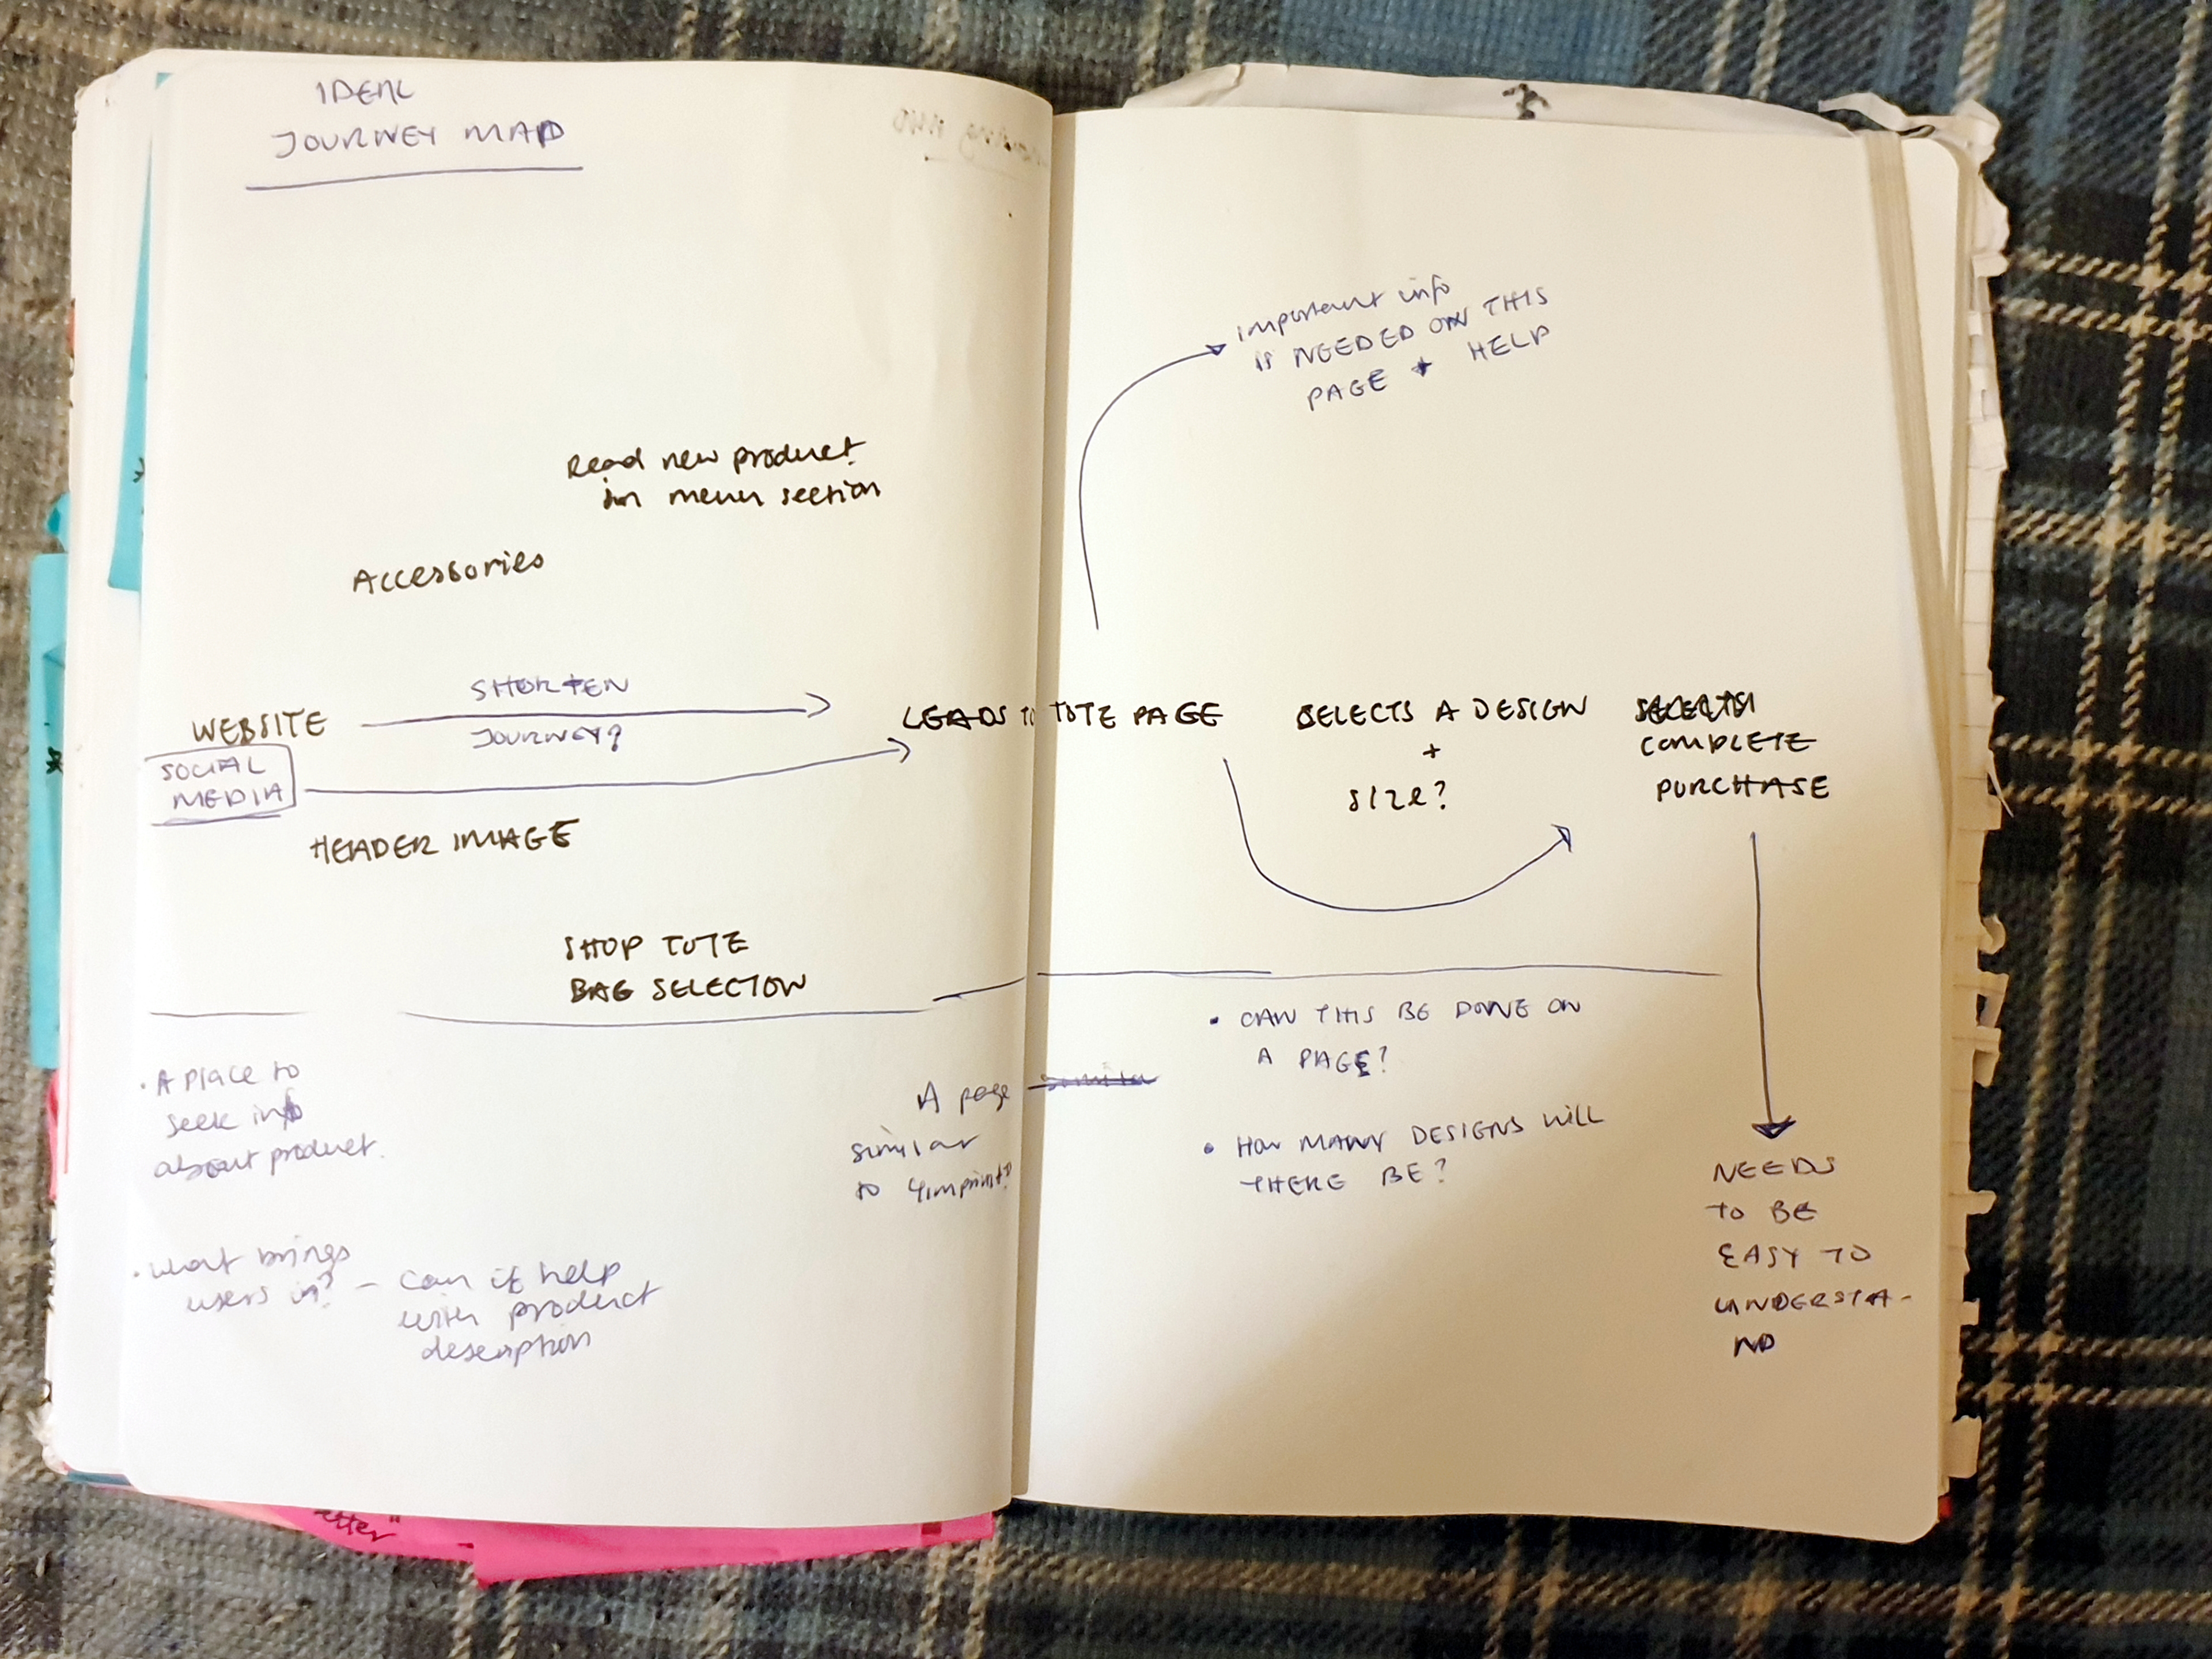 IDEAL
JOURNEY MAP
Read new product
in menu section
Accessories
SHORTEN
WEBSITE
JOURNEY?
SOCIAL
MEDIA
HEADER IMAGE
SHOP TOTE
BAG SELECTION
• A place to
seek info
about product.
• What brings
users in? – can it help
with product
description
A page
similar
to 4imprint?
important info
IS NEEDED ON THIS
PAGE + HELP
LEADS TO TOTE PAGE
SELECTS A DESIGN
+
SIZE?
SELECTS
COMPLETE
PURCHASE
• CAN THIS BE DONE ON
A PAGE?
• HOW MANY DESIGNS WILL
THERE BE?
NEEDS
TO BE
EASY TO
UNDERSTA-
ND
etter"